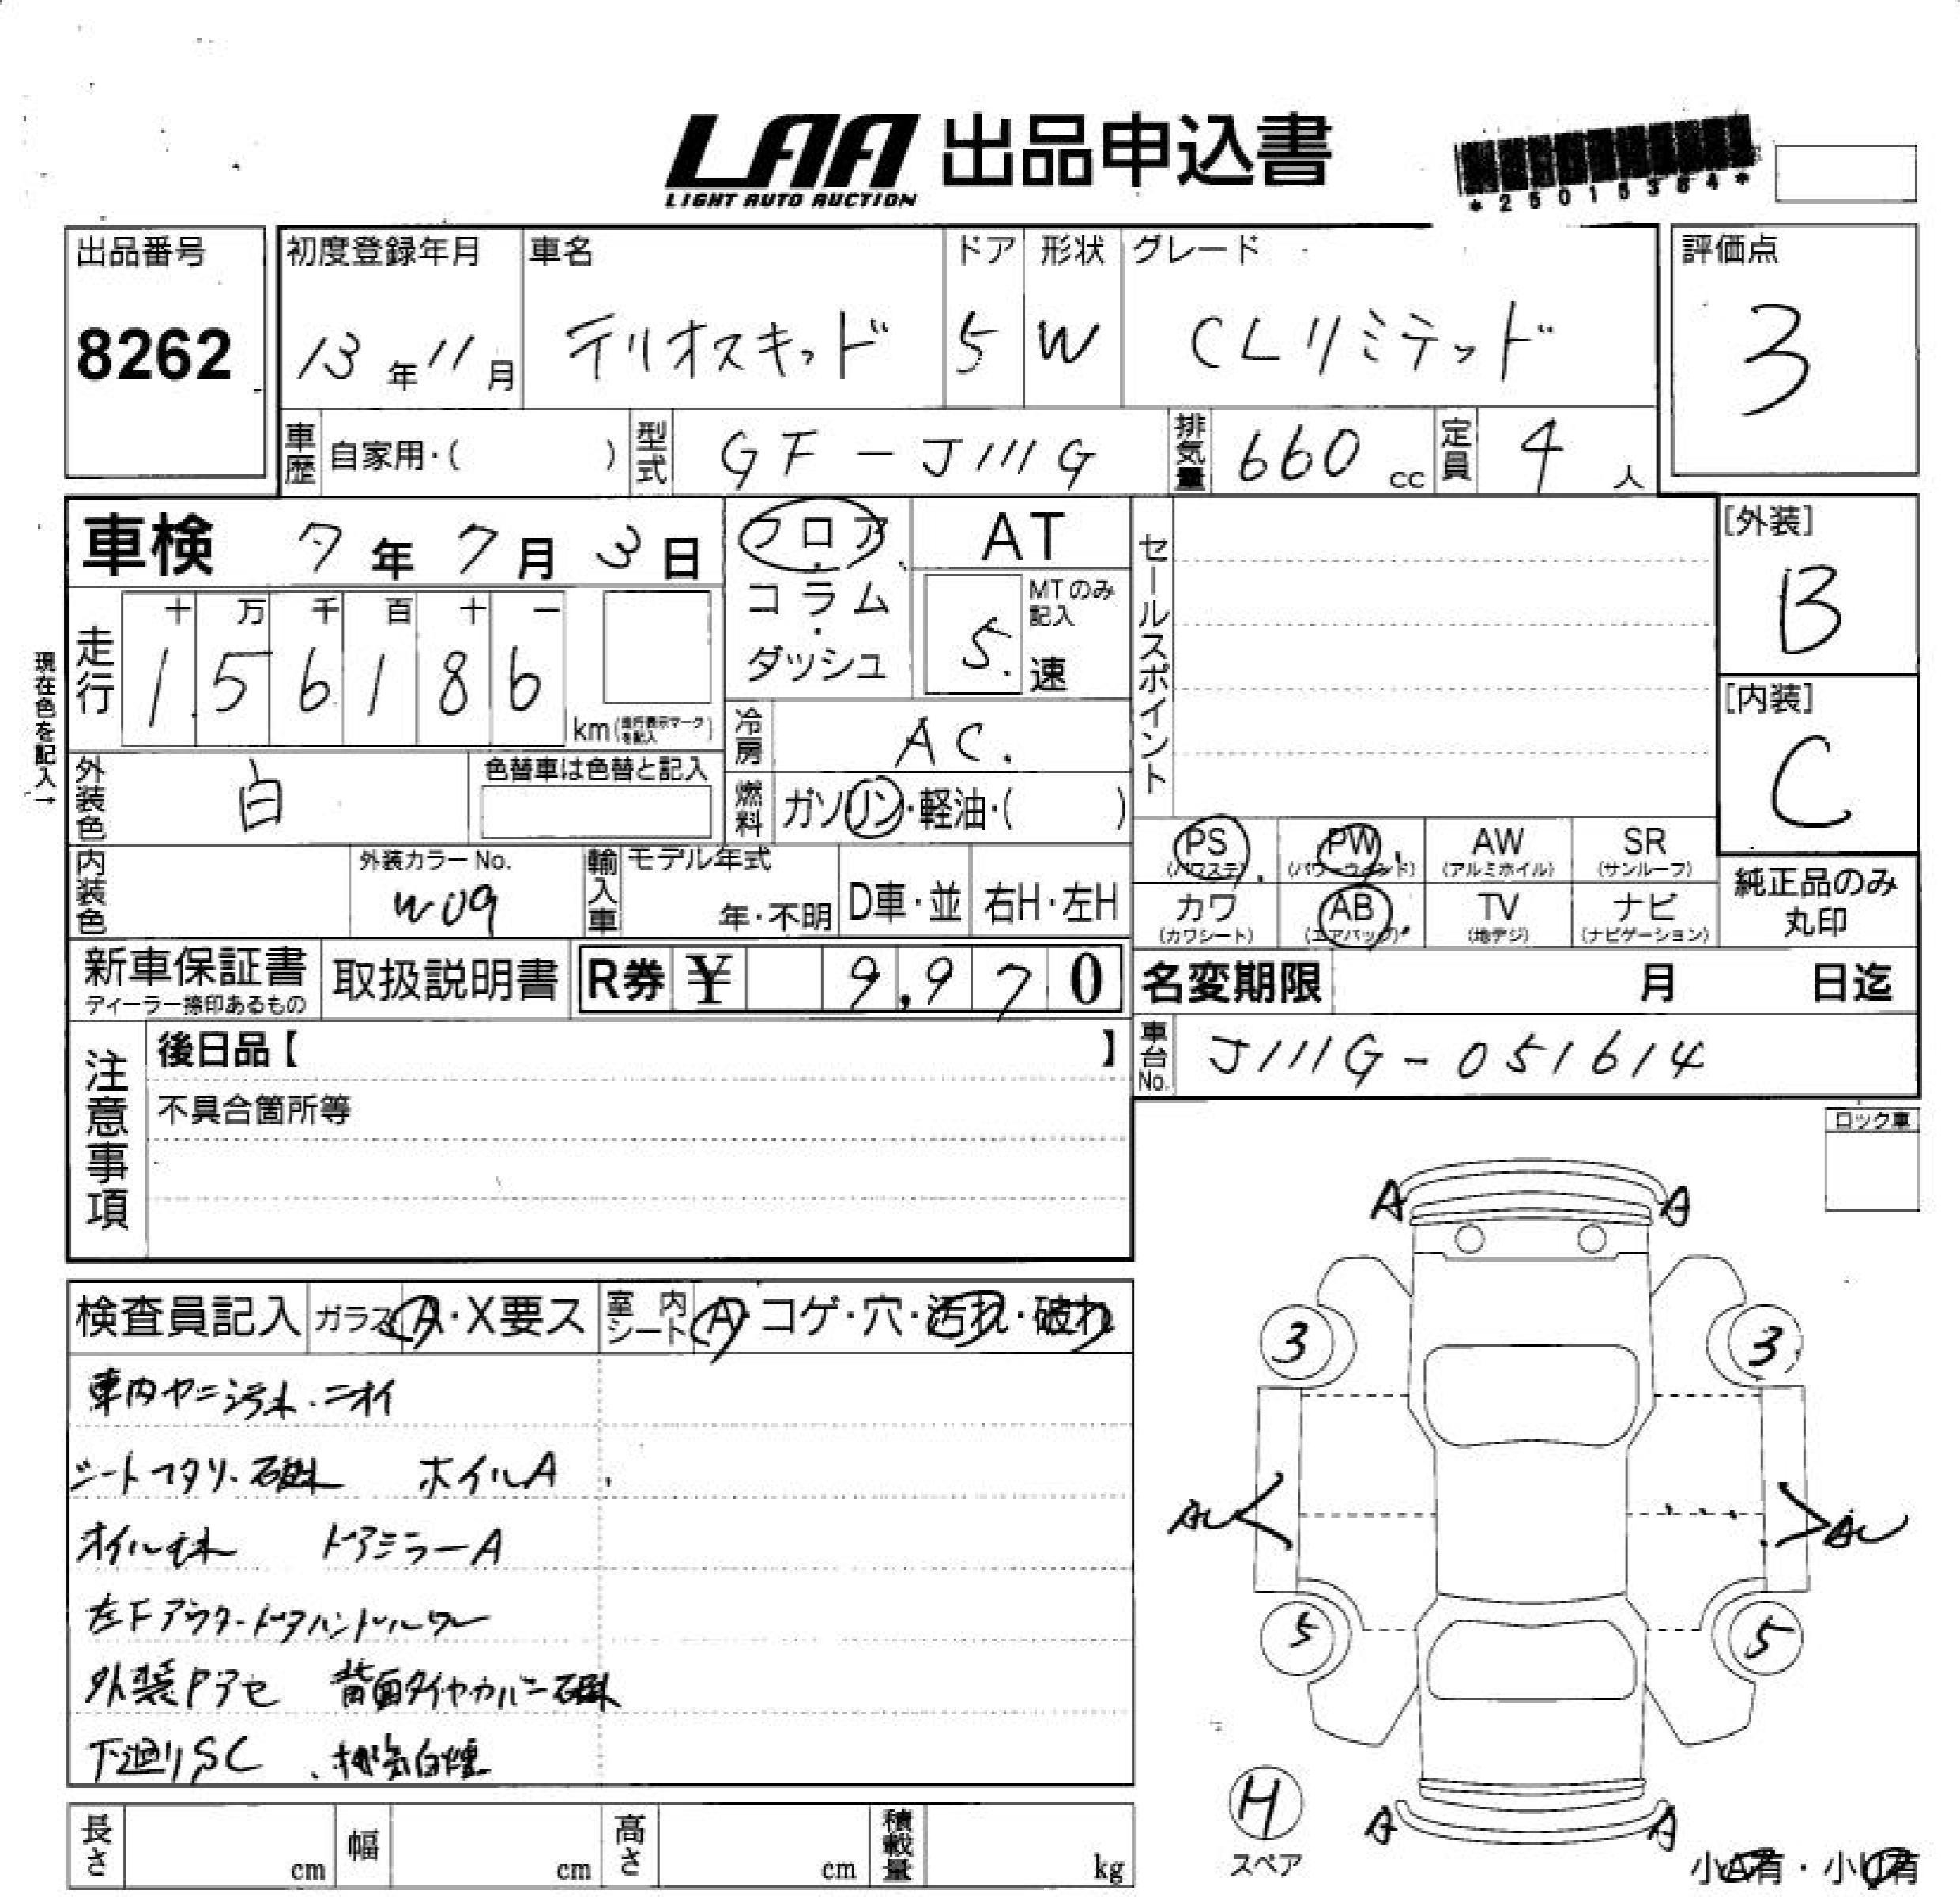 LAA 出品申込書
LIGHT AUTO AUCTION
*25015364*
出品番号 初度登録年月 車名 ドア 形状 グレード 評価点
8262 13年11月 テリオスキッド 5 W CLリミテッド 3
車歴 自家用・( ) 型式 GF-J111G 排気量 660cc 定員 4人
車検 7年7月3日 フロア・ AT [外装]
コラム・ MTのみ記入 B
ダッシュ 5.速
走行 十 万 千 百 十 一
156186 km(走行表示マークを記入)
現在色を記入→
セールスポイント
冷房 AC. [内装]
C
外装色 白 色替車は色替と記入 燃料 ガソリン・軽油・( )
PS(パワステ) PW(パワーウインド) AW(アルミホイル) SR(サンルーフ)
内装色 外装カラーNo. 輸入車 モデル年式 純正品のみ
W09 年・不明 D車・並 右H・左H 丸印
カワ(カワシート) AB(エアバッグ) TV(地デジ) ナビ(ナビゲーション)
新車保証書 取扱説明書 R券 ¥ 9,970 名変期限 月 日迄
ディーラー捺印あるもの
注意事項 後日品【 】 車台No. J111G-051614
不具合箇所等
ロック車
A A
検査員記入 ガラス A・X要ス 室内シート A・コゲ・穴・汚れ・破れ
3 3
車内ヤニ汚れ.ニオイ
シートヘタリ.破れ ホイルA
AU AU
オイル もれ ドアミラーA
左Fアウタードアハンドルワレ
5 5
外装Pアセ 背面タイヤカバー破れ
下廻りSC 、排気白煙
H
スペア
A A
長さ cm 幅 cm 高さ cm 積載量 kg
小A有・小U有